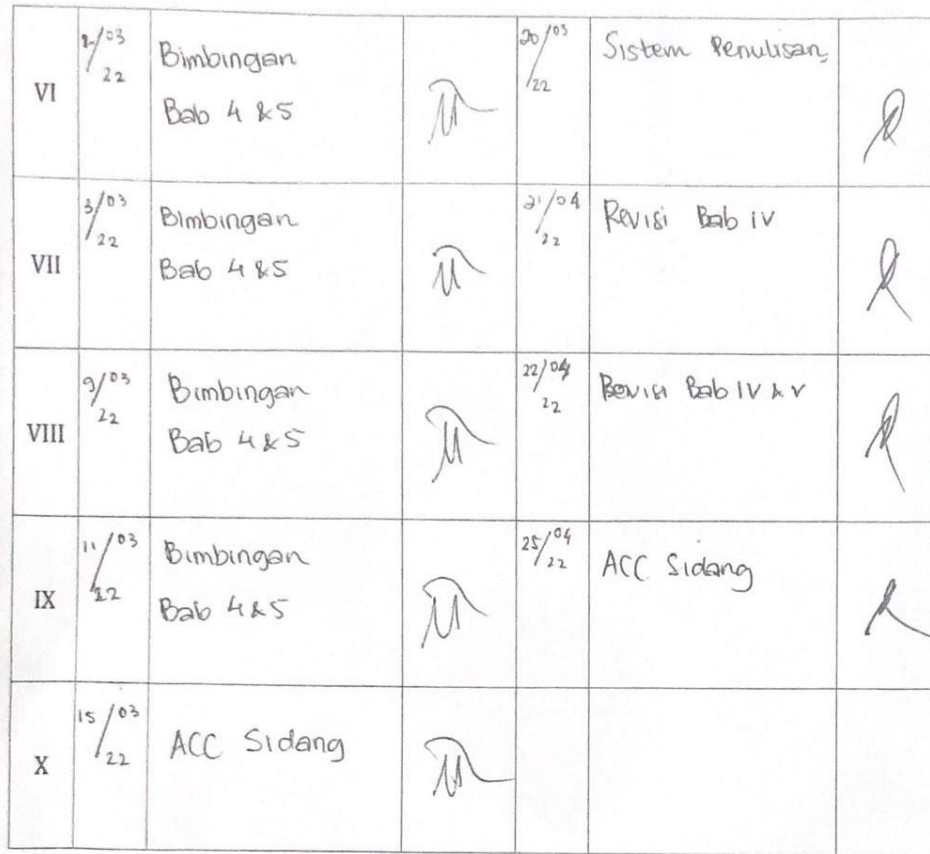 VI
2/03
22
Bimbingan
Bab 4 & 5
20/03
22
Sistem Penulisan
VII
3/03
22
Bimbingan
Bab 4 & 5
21/04
22
Revisi Bab IV
VIII
9/03
22
Bimbingan
Bab 4 & 5
22/04
22
Revisi Bab IV & V
IX
11/03
22
Bimbingan
Bab 4 & 5
25/04
22
ACC Sidang
X
15/03
22
ACC Sidang